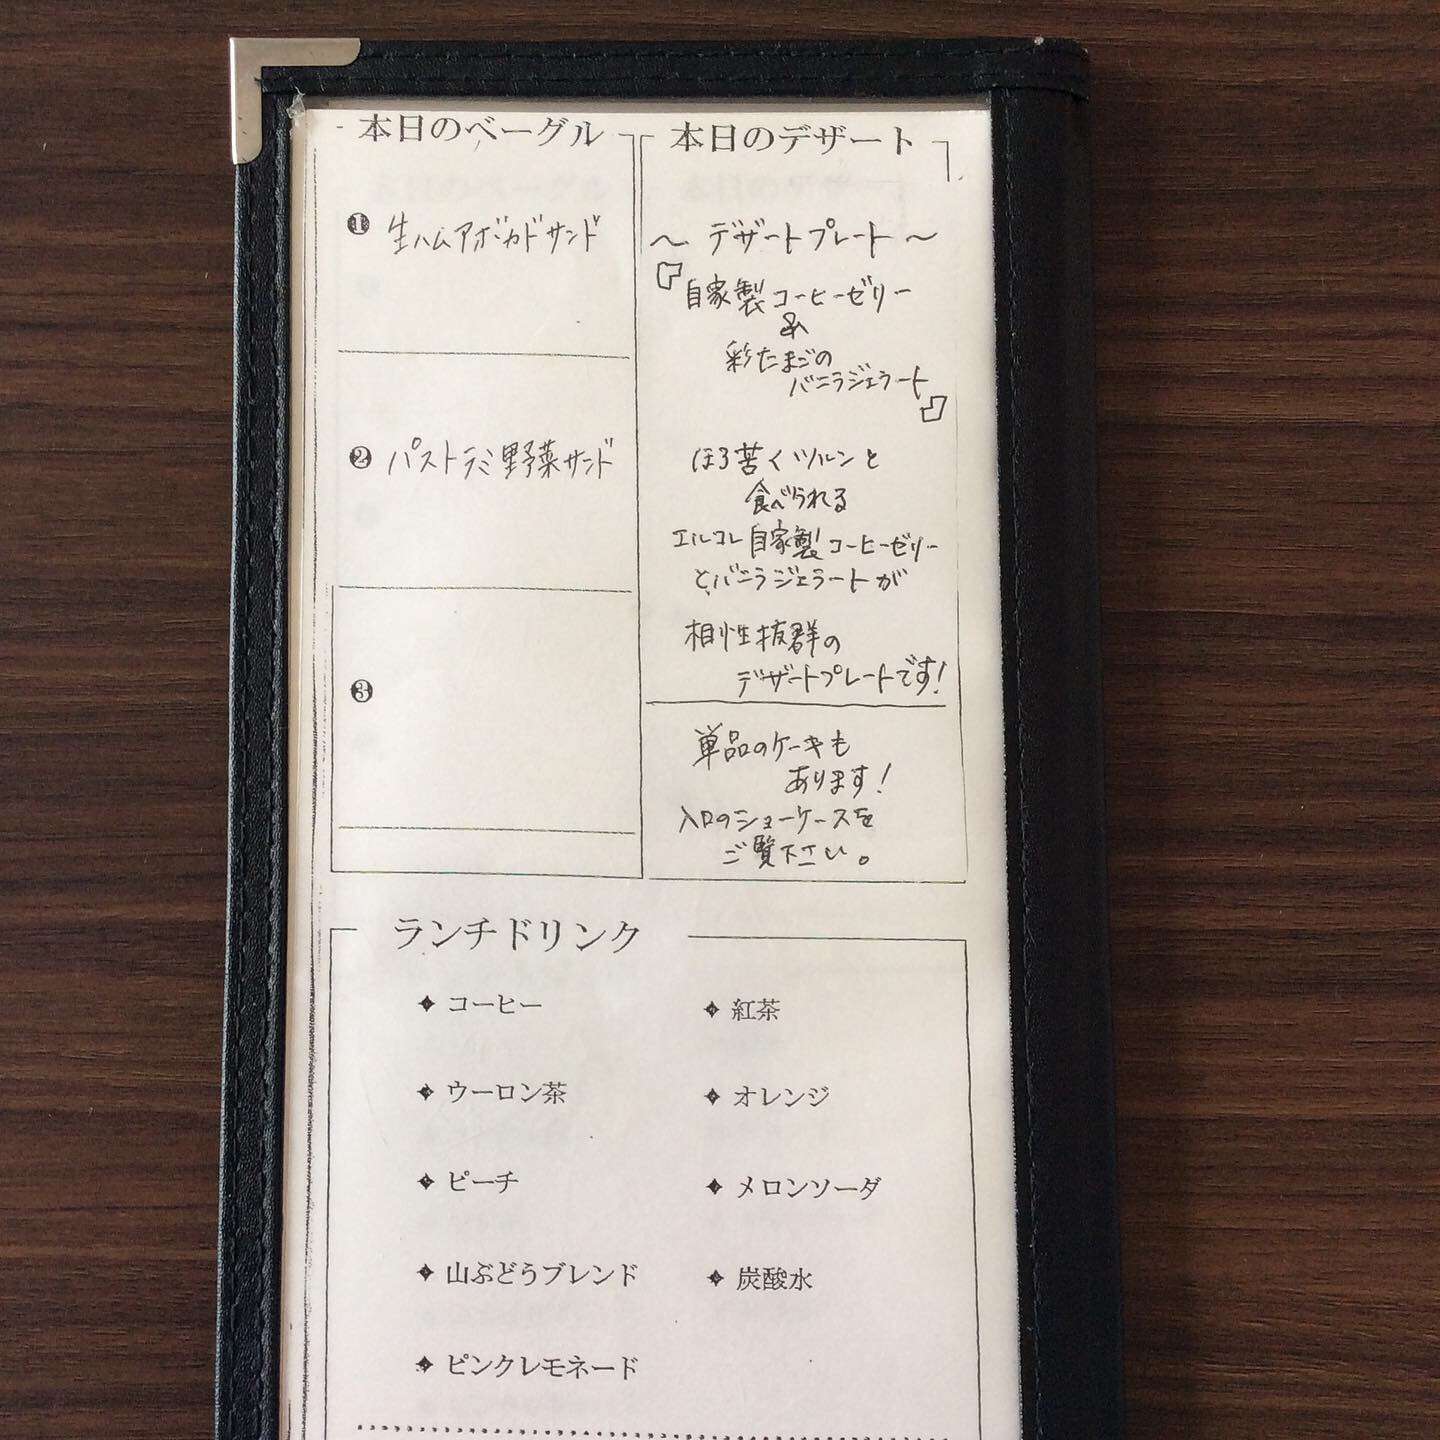 本日のベーグル
❶ 生ハムアボカドサンド
❷ パストラミ野菜サンド
❸
本日のデザート
～ デザートプレート ～
『自家製コーヒーゼリー
&
彩たまごの
バニラジェラート』
ほろ苦くツルンと
食べられる
エルコレ自家製コーヒーゼリー
とバニラジェラートが
相性抜群の
デザートプレートです!
単品のケーキも
あります!
入口のショーケースを
ご覧下さい。
ランチドリンク
コーヒー
紅茶
ウーロン茶
オレンジ
ピーチ
メロンソーダ
山ぶどうブレンド
炭酸水
ピンクレモネード